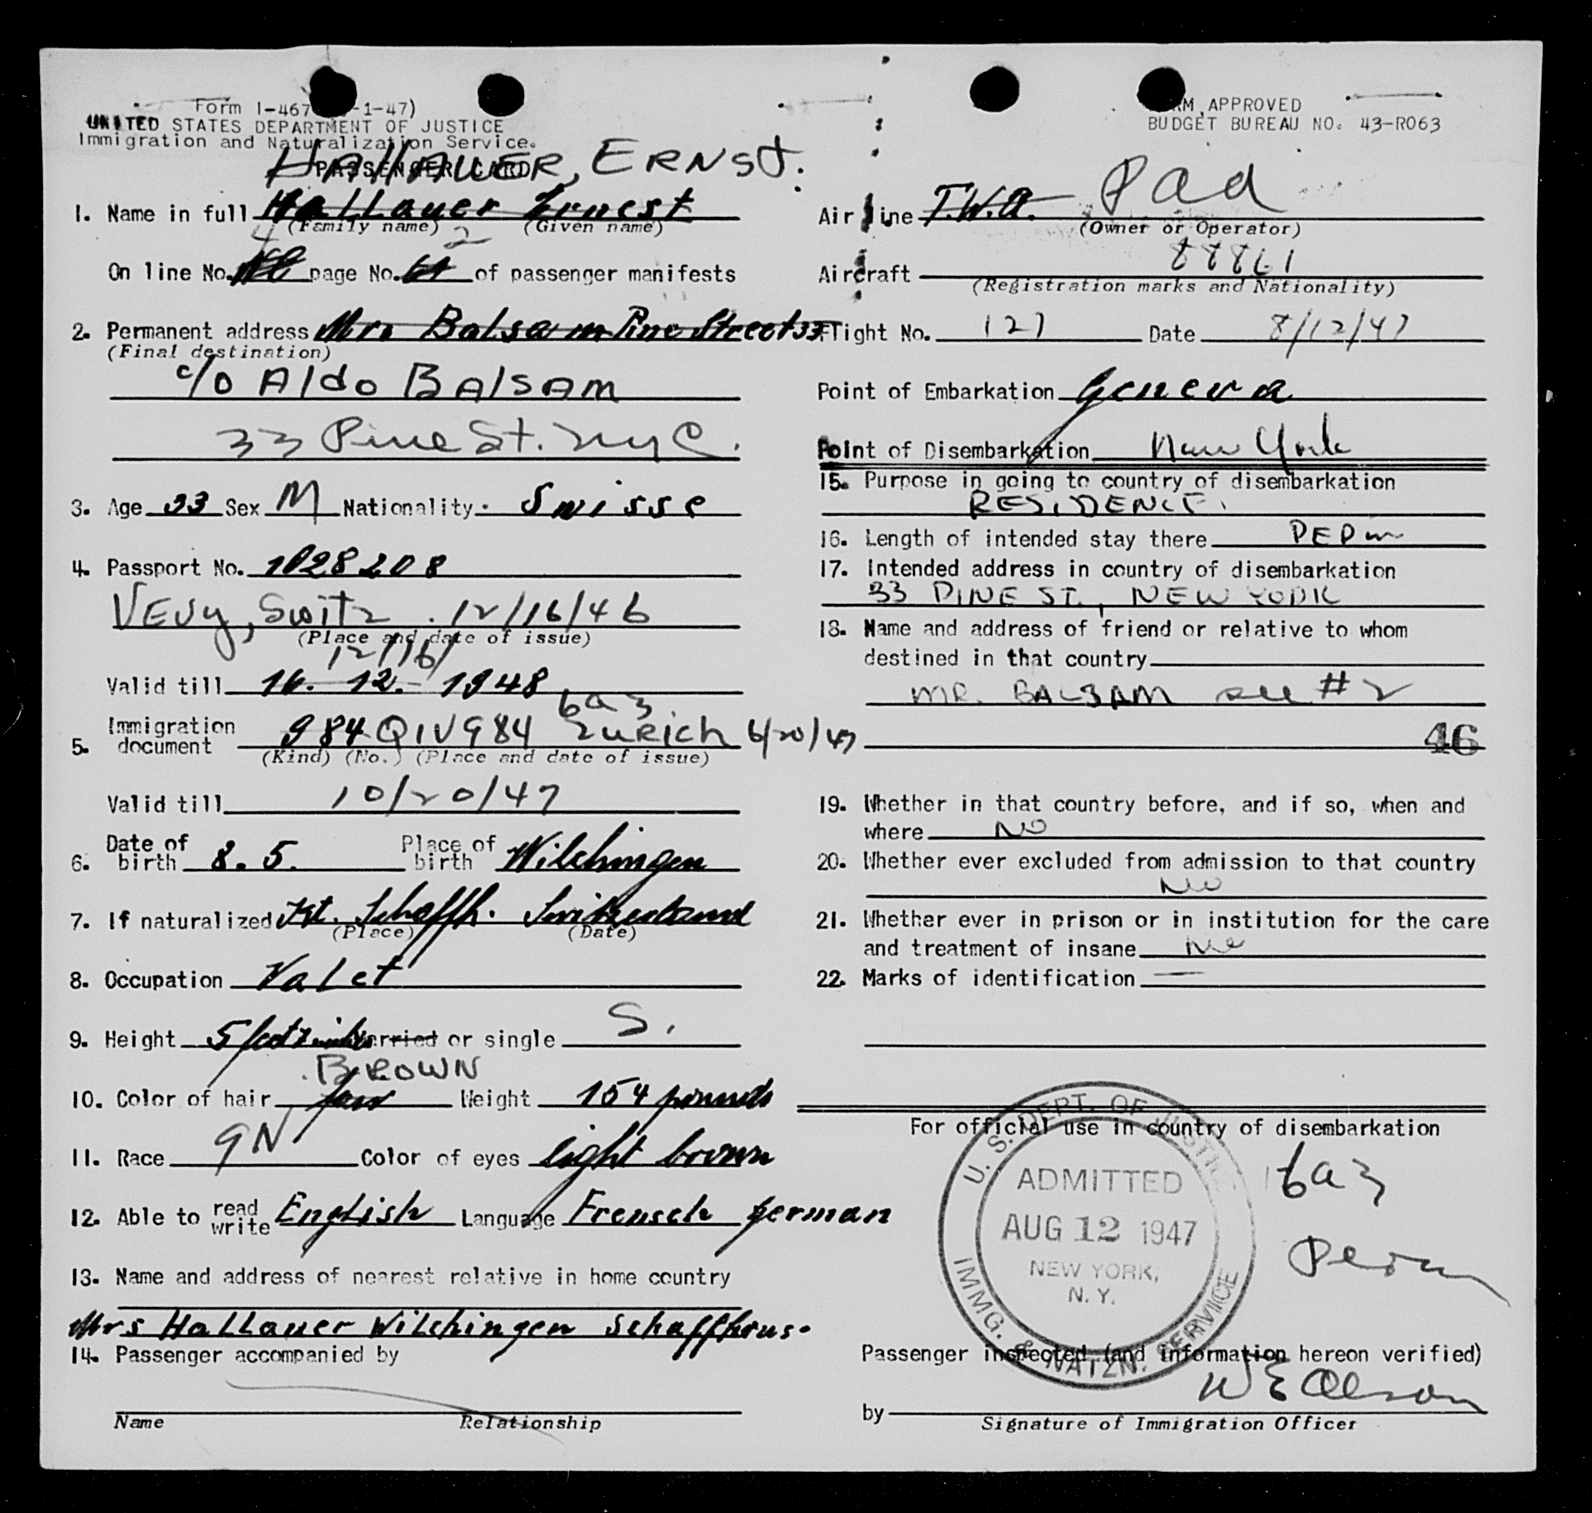 Form I-467 -1-47)
UNITED STATES DEPARTMENT OF JUSTICE
Immigration and Naturalization Service.
PASSENGER CARD
FORM APPROVED
BUDGET BUREAU NO. 43-R063
HALLAUER, ERNST.
1. Name in full Hallauer Ernest
(Family name) (Given name)
4 2
On line No. page No. of passenger manifests
2. Permanent address Mrs Balsam Pine Street 33
(Final destination)
c/o Aldo BAlsAm
33 Pine St. NYC.
3. Age 33 Sex M Nationality. Swisse
4. Passport No. 1028208
VEVY, Switz. 12/16/46
(Place and date of issue)
12/16/
Valid till 16. 12. 1948
6a3
5. Immigration document 984 QIV984 Zurich 6/20/47
(Kind) (No.) (Place and date of issue)
Valid till 10/20/47
6. Date of birth 8. 5. Place of birth Wilchingen
7. If naturalized Kt. Schaffh. Switzerland
(Place) (Date)
8. Occupation Valet
9. Height 5 feet married or single S.
BROWN
10. Color of hair Weight 154 pounds
11. Race Color of eyes light brown
12. Able to read write English Language French german
13. Name and address of nearest relative in home country
Mrs Hallauer Wilchingen Schaffhous.
14. Passenger accompanied by
Name Relationship
Air line T.W.A. Pad
(Owner or Operator)
Aircraft 88861
(Registration marks and Nationality)
Flight No. 127 Date 8/12/47
Point of Embarkation Geneva
Point of Disembarkation New York
15. Purpose in going to country of disembarkation
RESIDENCE.
16. Length of intended stay there PERM
17. Intended address in country of disembarkation
33 PINE ST., NEW YORK
18. Name and address of friend or relative to whom
destined in that country
MR. BALSAM see #2
46
19. Whether in that country before, and if so, when and
where NO
20. Whether ever excluded from admission to that country
No
21. Whether ever in prison or in institution for the care
and treatment of insane No
22. Marks of identification —
For official use in country of disembarkation
U. S. DEPT. OF JUSTICE
ADMITTED
AUG 12 1947
NEW YORK,
N. Y.
IMMG. & NATZN. SERVICE
6a3
Perm
Passenger inspected (and information hereon verified)
by W E Olson
Signature of Immigration Officer